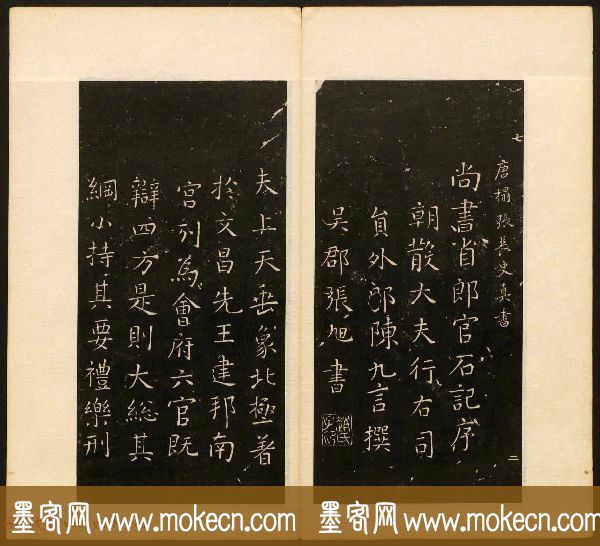 唐榻張長史真書
尚書省郎官石記序
朝散大夫行右司
員外郎陳九言撰
吳郡張旭書
七
二
夫上天垂象北極著
於文昌先王建邦南
宮列為會府六官既
辯四方是則大總其
綱小持其要禮樂刑
墨客网 www.mokecn.com
墨客网 www.mokecn.com